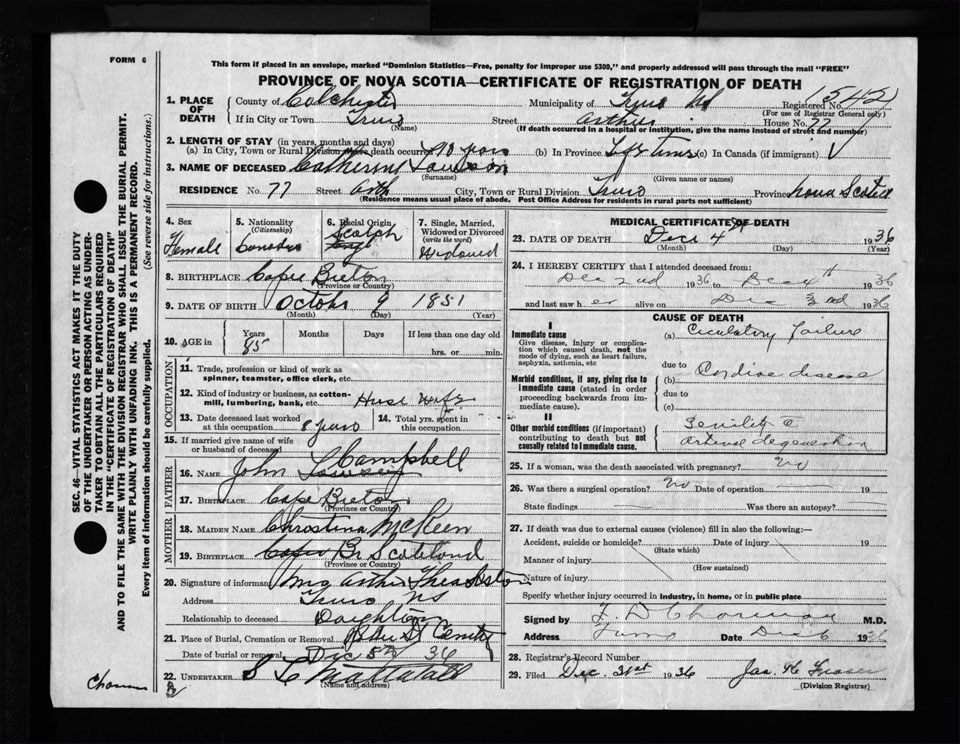 FORM 6
This form if placed in an envelope, marked "Dominion Statistics—Free, penalty for improper use $300," and properly addressed will pass through the mail "FREE"
PROVINCE OF NOVA SCOTIA—CERTIFICATE OF REGISTRATION OF DEATH
1. PLACE OF DEATH
County of Colchester Municipality of Truro NS Registered No. 1542
(For use of Registrar General only)
If in City or Town Truro Street Arthur House No. 77
(Name) (If death occurred in a hospital or institution, give the name instead of street and number)
2. LENGTH OF STAY (in years, months and days)
(a) In City, Town or Rural Division where death occurred years (b) In Province Life Time (c) In Canada (if immigrant)
3. NAME OF DECEASED Catherine
(Surname) (Given name or names)
RESIDENCE No. 77 Street City, Town or Rural Division Truro Province Nova Scotia
(Residence means usual place of abode. Post Office Address for residents in rural parts not sufficient)
4. Sex Female
5. Nationality (Citizenship)
6. Racial Origin Scotch
7. Single, Married, Widowed or Divorced (write the word) Widowed
8. BIRTHPLACE Cape Breton
(Province or Country)
9. DATE OF BIRTH 9 1851
(Month) (Day) (Year)
10. AGE in Years Months Days If less than one day old
85 hrs. or min.
OCCUPATION
11. Trade, profession or kind of work as spinner, teamster, office clerk, etc.
12. Kind of industry or business, as cotton-mill, lumbering, bank, etc. House Wife
13. Date deceased last worked at this occupation 8 years
14. Total yrs. spent in this occupation
15. If married give name of wife or husband of deceased
FATHER
16. NAME John Campbell
17. BIRTHPLACE Cape Breton
(Province or Country)
MOTHER
18. MAIDEN NAME Christina McKeen
19. BIRTHPLACE Scotland
(Province or Country)
20. Signature of informant Mrs Arthur
Address Truro NS
Relationship to deceased Daughter
21. Place of Burial, Cremation or Removal
Date of burial or removal Dec 5th 36
22. UNDERTAKER
(Name and address)
MEDICAL CERTIFICATE OF DEATH
23. DATE OF DEATH Dec 4 1936
(Month) (Day)
24. I HEREBY CERTIFY that I attended deceased from:
Dec 2nd 1936 to 1936
and last saw her alive on Dec 1936
CAUSE OF DEATH
I
Immediate cause
Give disease, injury or complication which caused death, not the mode of dying, such as heart failure, asphyxia, asthenia, etc
(a) Circulatory Failure
due to
Morbid conditions, if any, giving rise to immediate cause (stated in order proceeding backwards from immediate cause).
(b) Cardiac disease
due to
(c)
II
Other morbid conditions (if important) contributing to death but not causally related to immediate cause.
Senility c̄
Arterial degeneration
25. If a woman, was the death associated with pregnancy? No
26. Was there a surgical operation? No Date of operation 19
State findings Was there an autopsy?
27. If death was due to external causes (violence) fill in also the following:—
Accident, suicide or homicide? Date of injury 19
(State which)
Manner of injury
(How sustained)
Nature of injury
Specify whether injury occurred in industry, in home, or in public place
Signed by M.D.
Address Truro Date Dec 6 1936
28. Registrar's Record Number
29. Filed Dec. 31st 1936 Jas. H. Fraser
(Division Registrar)
SEC. 46—VITAL STATISTICS ACT MAKES IT THE DUTY
OF THE UNDERTAKER OR PERSON ACTING AS UNDERTAKER TO OBTAIN ALL THE PARTICULARS REQUIRED
IN THE "CERTIFICATE OF REGISTRATION OF DEATH"
AND TO FILE THE SAME WITH THE DIVISION REGISTRAR WHO SHALL ISSUE THE BURIAL PERMIT.
WRITE PLAINLY WITH UNFADING INK. THIS IS A PERMANENT RECORD.
Every item of information should be carefully supplied. (See reverse side for instructions.)